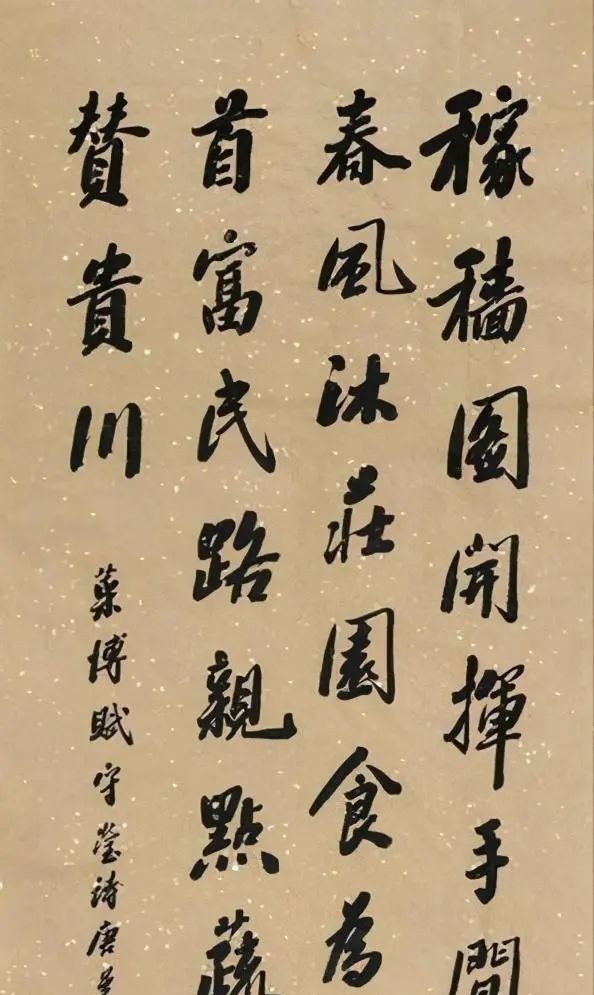 稼穡圖開揮手間
春風沐莊園食為
首富民路親點蔬
贊貴川
菜博賦守瑩詩唐